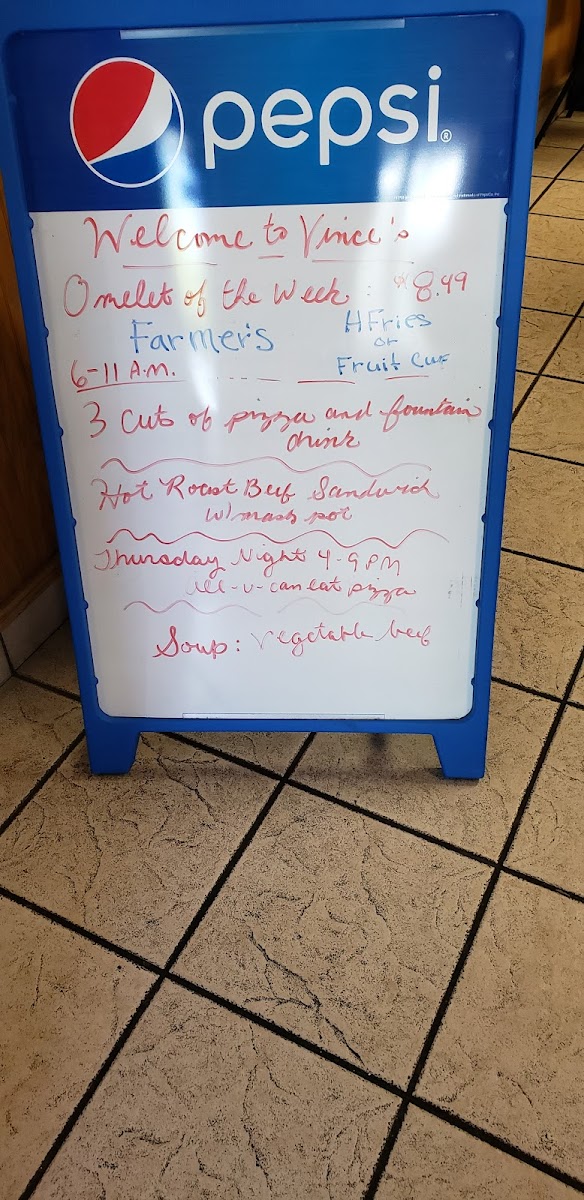 pepsi®
Welcome to Vince's
Omelet of the Week: $8.49
Farmer's
H Fries
or
Fruit Cup
6-11 A.M.
3 Cuts of pizza and fountain
drink
Hot Roast Beef Sandwich
w/mash pot
Thursday Night 4-9 PM
all-u-can eat pizza
Soup: Vegetable beef